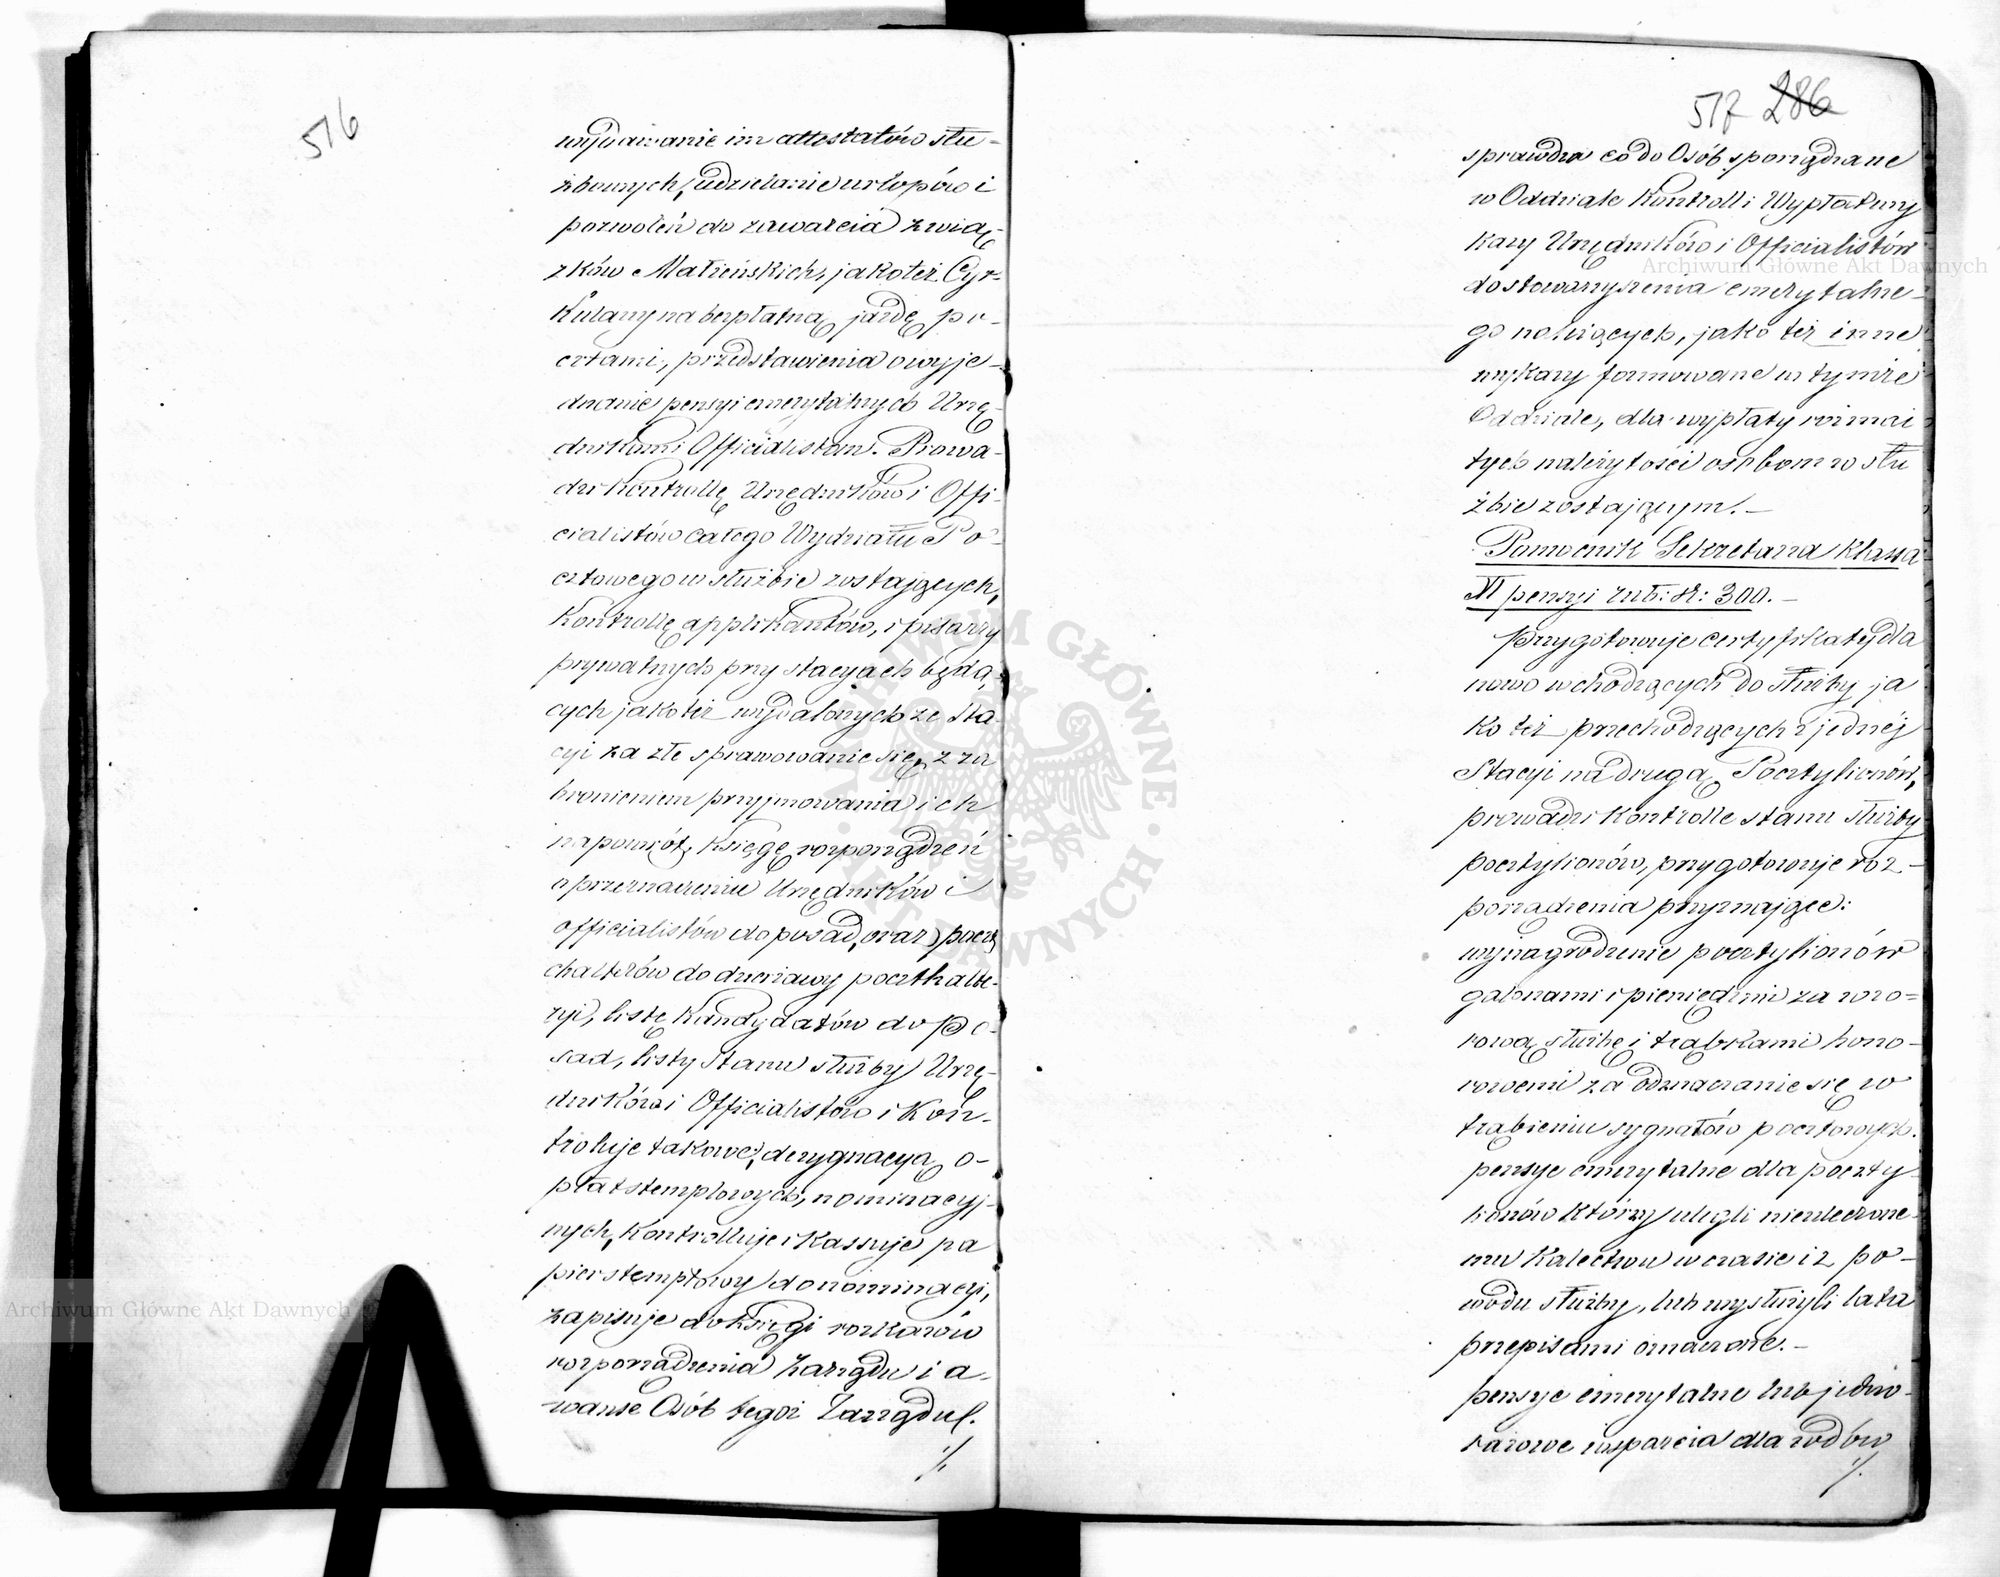 516
wydawanie im attestatów słu-
żbowych, udzielanie urlopów i
pozwoleń do zawarcia zwią-
zków Małżeńskich, jakoteż Cyr-
kularzy na bezpłatną jazdę po-
cztami, przedstawienia o wyje-
dnanie pensyi emerytalnych Urzę-
dnikom i Officialistom. Prowa-
dzi Kontrollę Urzędników i Offi-
cialistów całego Wydziału Po-
cztowego w służbie zostających,
Kontrollę applikantów, i pisarzy
prywatnych przy stacyach będą-
cych jakoteż wydalonych ze Sta-
cyi za złe sprawowanie się, z za
bronieniem przyjmowania ich
napowrót, Księgę rozporządzeń
o przeznaczeniu Urzędników i
officialistów do posad, oraz pocz
chalterów do dzierżawy poczthalte-
ryi, listę Kandydatów do po-
sad, listy Stanu służby Urzę-
dników i Officialistów i Kon-
troluje takowe, dezygnacyą o-
płat stemplowych, nominacyj-
nych, Kontrolluje i Kassuje pa
pier stemplowy do nominacyi,
zapisuje do Księgi rozkazów
rozporządzenia Zarządu i a-
wanse Osób tegoż Zarządu.
./.
517 286
sprawdza co do Osób sporządzane
w Oddziale Kontroll i Wypłat wy
kazy Urzędników i Officialistów
do stowarzyszenia emerytalne-
go należących, jako też inne
wykazy formowane w tymże
Oddziale, dla wypłaty rozmai
tych należytości osobom w słu
żbie zostającym.-
Pomocnik Sekretarza Klassa
XI pensyi rub: sr: 300.-
Przygotowuje certyfikaty dla
nowo wchodzących do służby ja
ko też przechodzących z jednéj
Stacyi na drugą Pocztylionów,
prowadzi Kontrolle stanu służby
pocztylionów, przygotowuje roz-
porządzenia przyznające:
wynagrodzenie pocztylionów
galonami i pieniędzmi za wzo=
rową służbę i trąbkami hono-
rowemi za odznaczanie się w
trąbieniu sygnałów pocztowych.
pensye emerytalne dla poczty-
lionów którzy ulegli nieuleczone-
mu Kalectwu w czasie i z po-
wodu służby, lub wysłużyli lata
przepisami oznaczone.-
pensye emerytalne lub jedno-
razowe wsparcia dla wdów
./.
Archiwum Główne Akt Dawnych
Archiwum Główne Akt Dawnych
ARCHIWUM GŁÓWNE AKT DAWNYCH